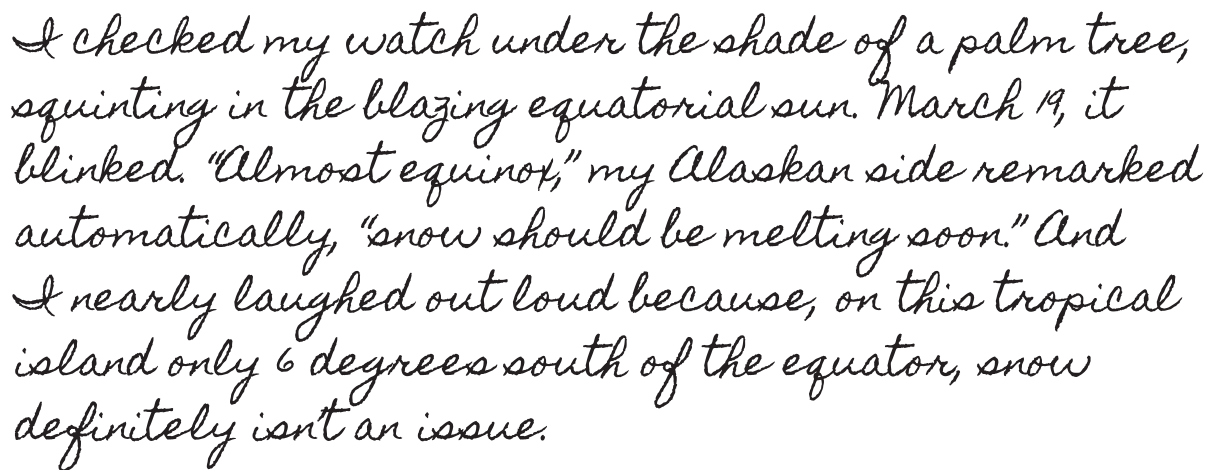 I checked my watch under the shade of a palm tree,
squinting in the blazing equatorial sun. March 19, it
blinked. “Almost equinox,” my Alaskan side remarked
automatically, “snow should be melting soon.” And
I nearly laughed out loud because, on this tropical
island only 6 degrees south of the equator, snow
definitely isn't an issue.